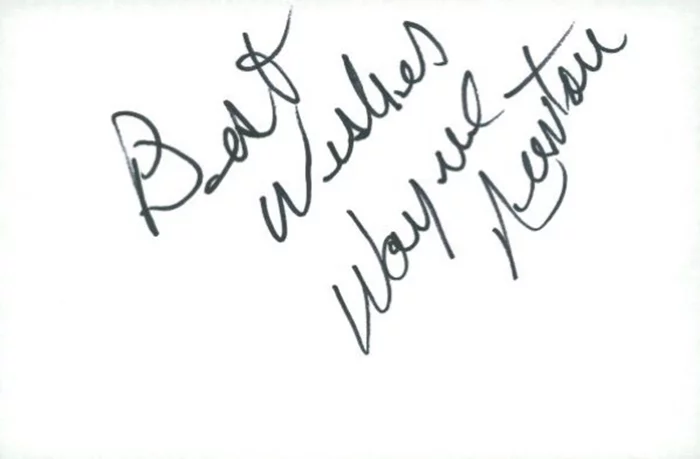 Best
Wishes
Wayne
Newton